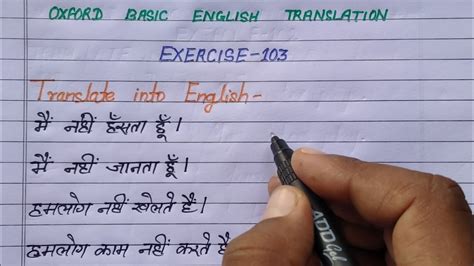 OXFORD BASIC ENGLISH TRANSLATION
EXERCISE-103
Translate into English-
मैं नहीं हँसता हूँ।
मैं नहीं जानता हूँ।
हमलोग नहीं खेलते हैं।
हमलोग काम नहीं करते हैं
ADD Gel